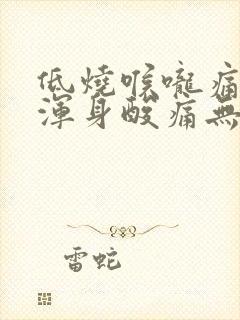 低燒喉嚨痛
渾身酸痛無
雷蛇